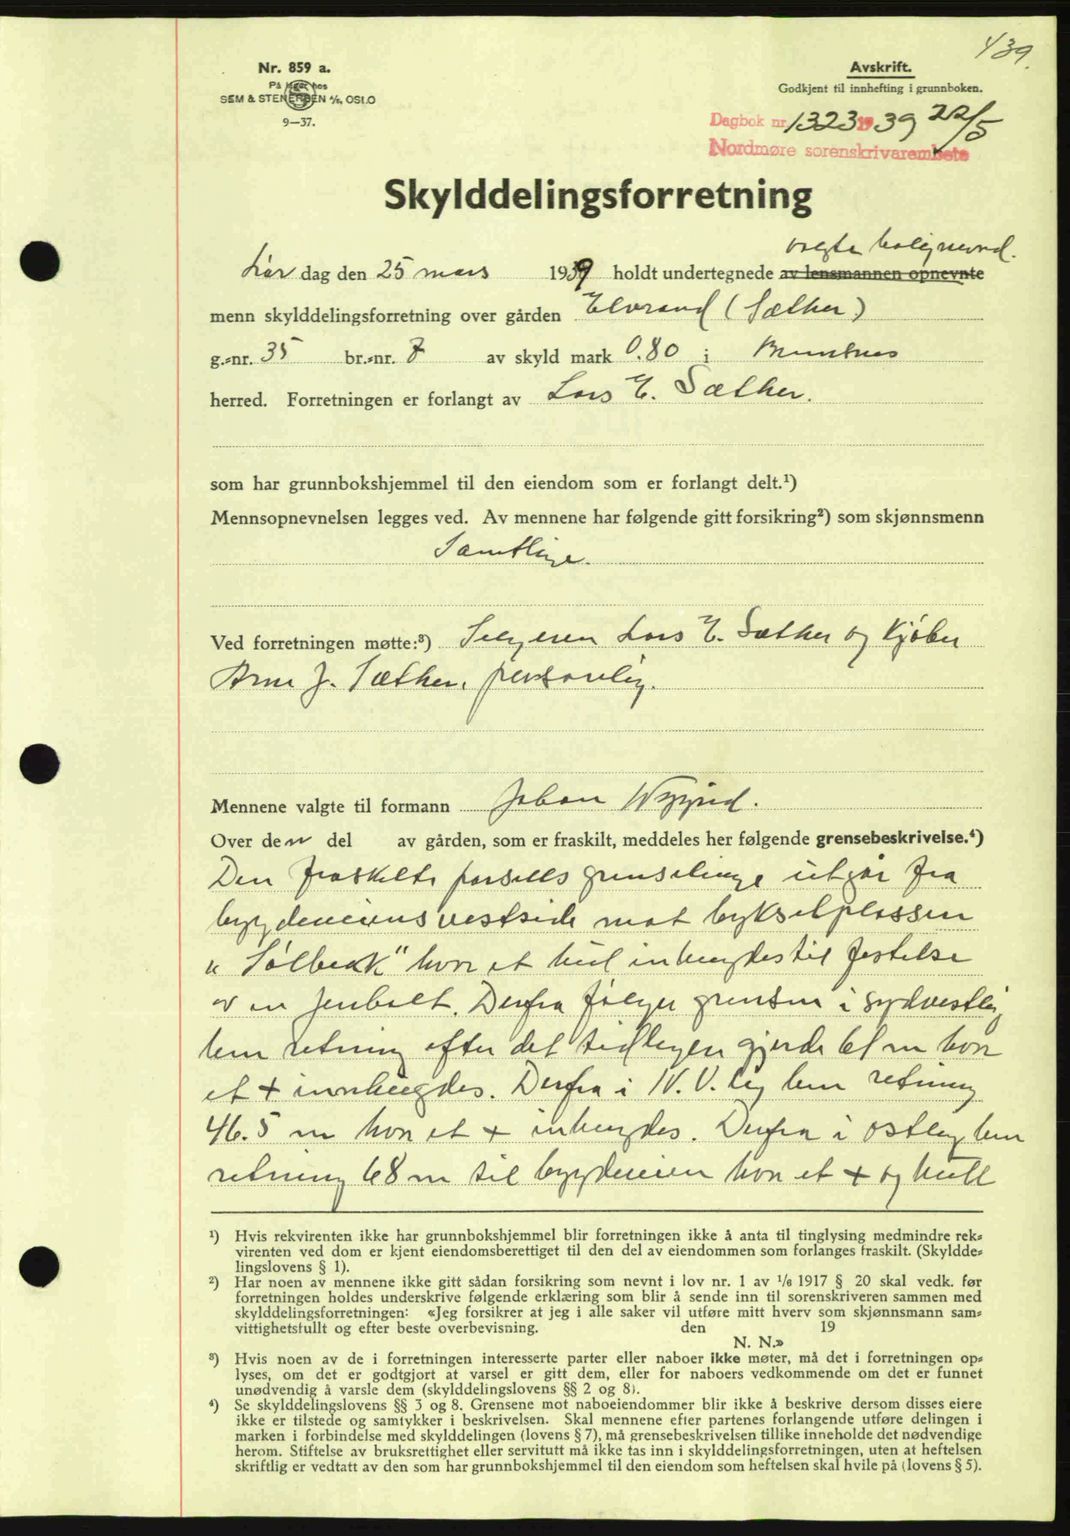 439.
Nr. 859 a.
På lager hos
SEM & STENERSEN A/S, OSLO
9-37.
Avskrift.
Godkjent til innhefting i grunnboken.
Dagbok nr. 1323 1939 22/5
Nordmøre sorenskrivarembete
Skylddelingsforretning
valgte
Lør dag den 25 mars 1939 holdt undertegnede av lensmannen opnevnte
menn skylddelingsforretning over gården Elvrand (Sæther)
g.-nr. 35 br.-nr. 7 av skyld mark 0.80 i
herred. Forretningen er forlangt av Lars E. Sæther.
som har grunnbokshjemmel til den eiendom som er forlangt delt.¹)
Mennsopnevnelsen legges ved. Av mennene har følgende gitt forsikring²) som skjønnsmenn
Samtlige.
Ved forretningen møtte:³) Selgeren Lars E. Sæther og Kjøber
Arne J. Sæther, personlig.
Mennene valgte til formann Johan
Over den del av gården, som er fraskilt, meddeles her følgende grensebeskrivelse.⁴)
Den fraskilte parsells grenselinje utgår fra
bygdeveiens vestside mot bykselplassen
"Sølbekk" hvor et hul inhugdes til festelse
av en jenbolt. Derfra følger grensen i sydvestlig
lem retning efter det tidligere gjerde 61 m hvor
et + innhugdes. Derfra i N.V. lig lem retning
46.5 m hvor et + inhugdes. Derfra i ostlig lem
retning 68 m til bygdeveien hvor et + og hull
¹) Hvis rekvirenten ikke har grunnbokshjemmel blir forretningen ikke å anta til tinglysing medmindre rek-
virenten ved dom er kjent eiendomsberettiget til den del av eiendommen som forlanges fraskilt. (Skyldde-
lingslovens § 1).
²) Har noen av mennene ikke gitt sådan forsikring som nevnt i lov nr. 1 av 1/6 1917 § 20 skal vedk. før
forretningen holdes underskrive følgende erklæring som blir å sende inn til sorenskriveren sammen med
skylddelingsforretningen: «Jeg forsikrer at jeg i alle saker vil utføre mitt hverv som skjønnsmann sam-
vittighetsfullt og efter beste overbevisning. den 19
N. N.»
³) Hvis noen av de i forretningen interesserte parter eller naboer ikke møter, må det i forretningen op-
lyses, om det er godtgjort at varsel er gitt dem, eller for naboers vedkommende om det er funnet
unødvendig å varsle dem (skylddelingslovens §§ 2 og 8).
⁴) Se skylddelingslovens §§ 3 og 8. Grensene mot naboeiendommer blir ikke å beskrive dersom disses eiere
ikke er tilstede og samtykker i beskrivelsen. Skal mennene efter partenes forlangende utføre delingen i
marken i forbindelse med skylddelingen (lovens § 7), må grensebeskrivelsen tillike inneholde det nødvendige
herom. Stiftelse av bruksrettighet eller servitutt må ikke tas inn i skylddelingsforretningen, uten at heftelsen
skriftlig er vedtatt av den som har grunnbokshjemmel til den eiendom som heftelsen skal hvile på (lovens § 5).